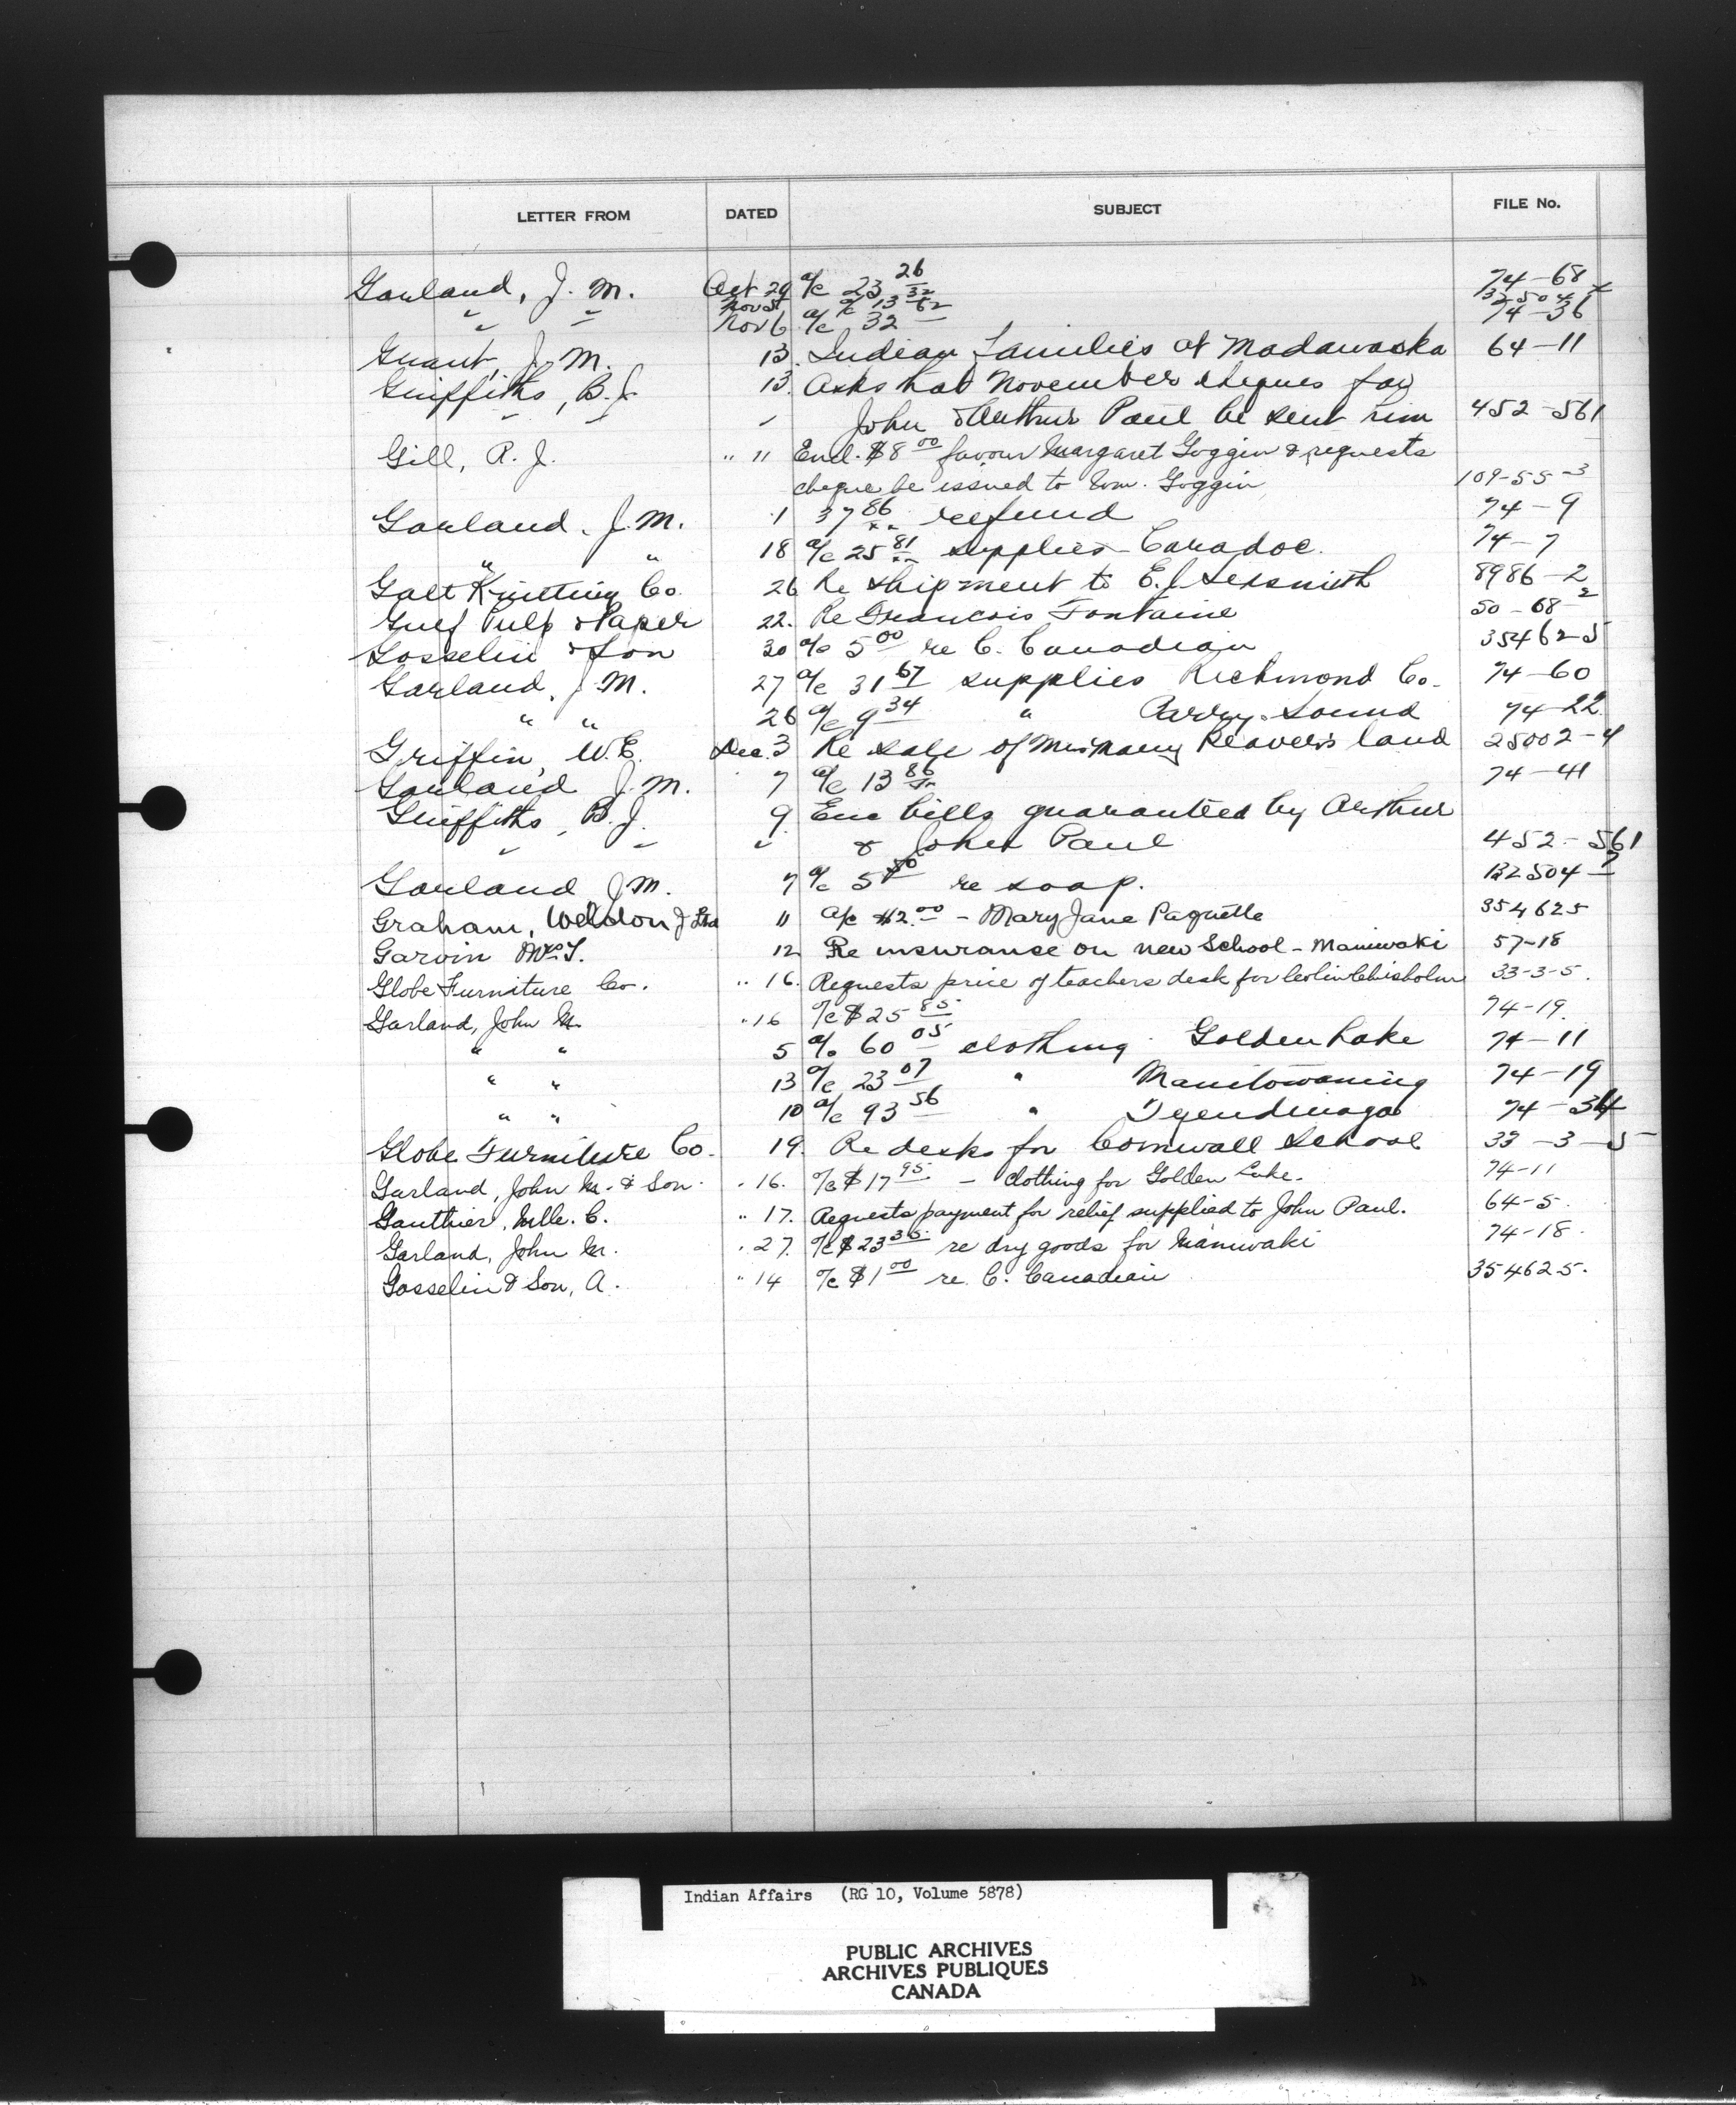 LETTER FROM DATED SUBJECT FILE No.
Garland, J. M. Oct 29 a/c 23 26 74-68
Nov 5 a/c 13 32 132504-2
" " Nov 6 a/c 32 62 74-36
Grant, J. M. 13. Indian Families at Madawaska 64-11
Griffiths, B.J. 13. Asks that November cheques for
" " " John & Arthur Paul be sent him 452-561
Gill, R. J. " 11 Encl. $8 00 favour Margaret Goggin & requests
cheque be issued to Wm. Goggin 109-55-3
Garland, J. M. 1 37 86 refund 74-9
" " 18 a/c 25 81 supplies - Caradoc. 74-7
Galt Knitting Co. 26 Re shipment to E. J. Sexsmith 8986-2
Gulf Pulp & Paper 22. Re Francois Fontaine 50-68-2
Gosselin & Son 30 a/c 5 00 re C. Canadian 35462-5
Garland, J. M. 27 a/c 31 67 supplies Richmond Co. 74-60
" " 26 a/c 9 34 " Parry Sound 74-22
Griffin, W.E. Dec. 3 Re sale of Mrs Mary Beaver's land 25002-4
Garland J. M. 7 a/c 13 86 74-41
Griffiths, B.J. 9. Enc bills guaranteed by Arthur
" " " & John Paul 452-561
Garland J M. 7 a/c 5 re soap. 132504-2
Graham, Weldon J Ltd 11 a/c $2.00 - Mary Jane Paquette 354625
Garvin Mrs T. 12 Re insurance on new School - Maniwaki 57-18
Globe Furniture Co. " 16. Requests price of teachers desk for Colin Chisholm 33-3-5.
Garland, John M. " 16 a/c $25 85. 74-19.
" " 5 a/c 60 05 clothing Golden Lake 74-11
" " 13 a/c 23 07 " Manitowaning 74-19
" " 10 a/c 93 56 " Tyendinaga 74-34
Globe Furniture Co. 19. Re desks for Cornwall School 33-3-5
Garland, John M. & Son. " 16. a/c $17 95. - clothing for Golden Lake. 74-11
Gauthier, Mlle. C. " 17. Requests payment for relief supplied to John Paul. 64-5.
Garland, John M. " 27. a/c $23 35. re dry goods for Maniwaki 74-18.
Gosselin & Son, A. " 14 a/c $1 00 re. C. Canadian 354625.
Indian Affairs (RG 10, Volume 5878)
PUBLIC ARCHIVES
ARCHIVES PUBLIQUES
CANADA